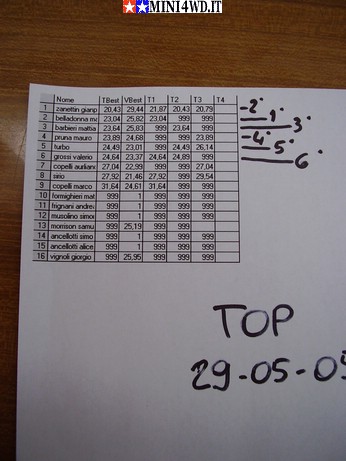 MINI4WD.IT
Nome TBest VBest T1 T2 T3 T4
1 zanettin gianp 20,43 29,44 21,87 20,43 20,79
2 belladonna ma 23,04 25,82 23,04 999 999
3 barbieri mattia 23,64 25,83 999 23,64 999
4 pruna mauro 23,89 24,68 999 999 23,89
5 furbo 24,49 23,01 999 24,49 26,14
6 grossi valerio 24,64 23,37 24,64 24,89 999
7 copelli aurliano 27,04 22,99 999 999 27,04
8 sirio 27,92 21,46 27,92 999 29,54
9 copelli marco 31,64 24,61 31,64 999 999
10 formighieri mat 999 1 999 999 999
11 frignani andrea 999 1 999 999 999
12 musolino simon 999 1 999 999 999
13 morrison samu 999 25,19 999 999
14 ancellotti simo 999 1 999 999 999
15 ancellotti alice 999 1 999 999 999
16 vignoli giorgio 999 25,95 999 999 999
-2°
1°
3°
-4°
5°
6°
TOP
29-05-05